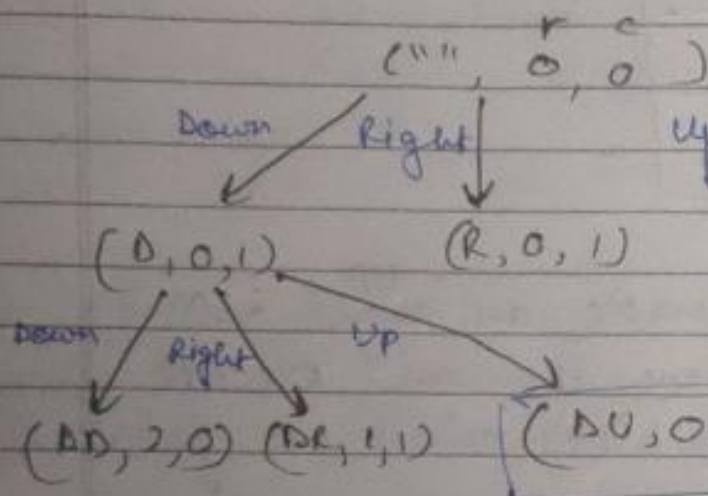 r c
("", 0, 0)
Down Right Up
(D, 0, 1) (R, 0, 1)
Down Right Up
(DD, 2, 0) (DR, 1, 1) (DU, 0